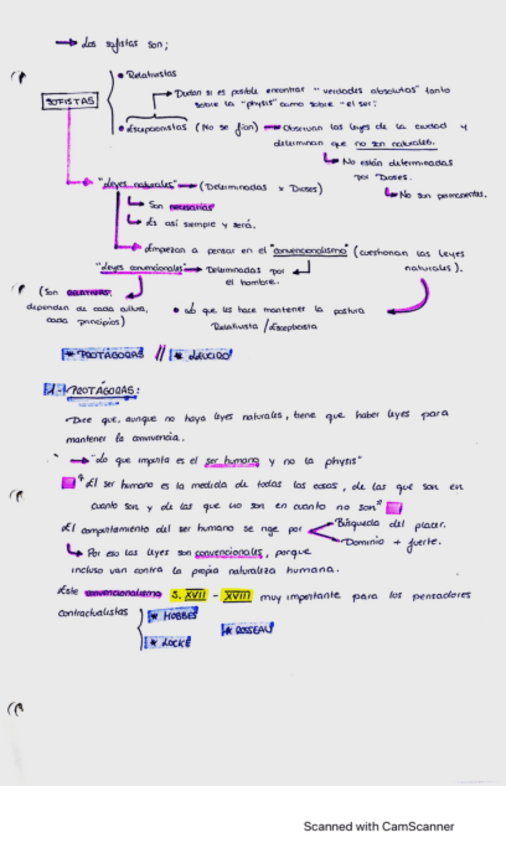 → Los sofistas son;
• Relativistas
SOFISTAS
→ Dudan si es posible encontrar "verdades absolutas" tanto
sobre la "physis" como sobre el ser.
• Escepcionistas (No se fían) → Observan las leyes de la ciudad y
determinan que no son naturales.
↳ No están determinadas
por Dioses.
↳ No son permanentes.
→ "Leyes naturales" → (Determinadas x Dioses)
↳ Son necesarias
↳ Es así siempre y será.
→ Empiezan a pensar en el "convencionalismo" (cuestionan las leyes
naturales).
"Leyes convencionales" → Determinadas por
el hombre.
(Son
dependen de cada cultura,
cada principios)
• Lo que les hace mantener la postura
Relativista /
* PROTÁGORAS // *
1.- PROTÁGORAS:
Dice que, aunque no haya leyes naturales, tiene que haber leyes para
mantener la convivencia.
→ "Lo que importa es el ser humano y no la physis"
"El ser humano es la medida de todas las cosas, de las que son en
cuanto son y de las que no son en cuanto no son"
El comportamiento del ser humano se rige por
Búsqueda del placer.
Dominio + fuerte.
↳ Por eso las leyes son convencionales, porque
incluso van contra la propia naturaleza humana.
Este convencionalismo S. XVII - XVIII muy importante para los pensadores
contractualistas
* HOBBES
* ROSSEAU
* LOCKE
Scanned with CamScanner